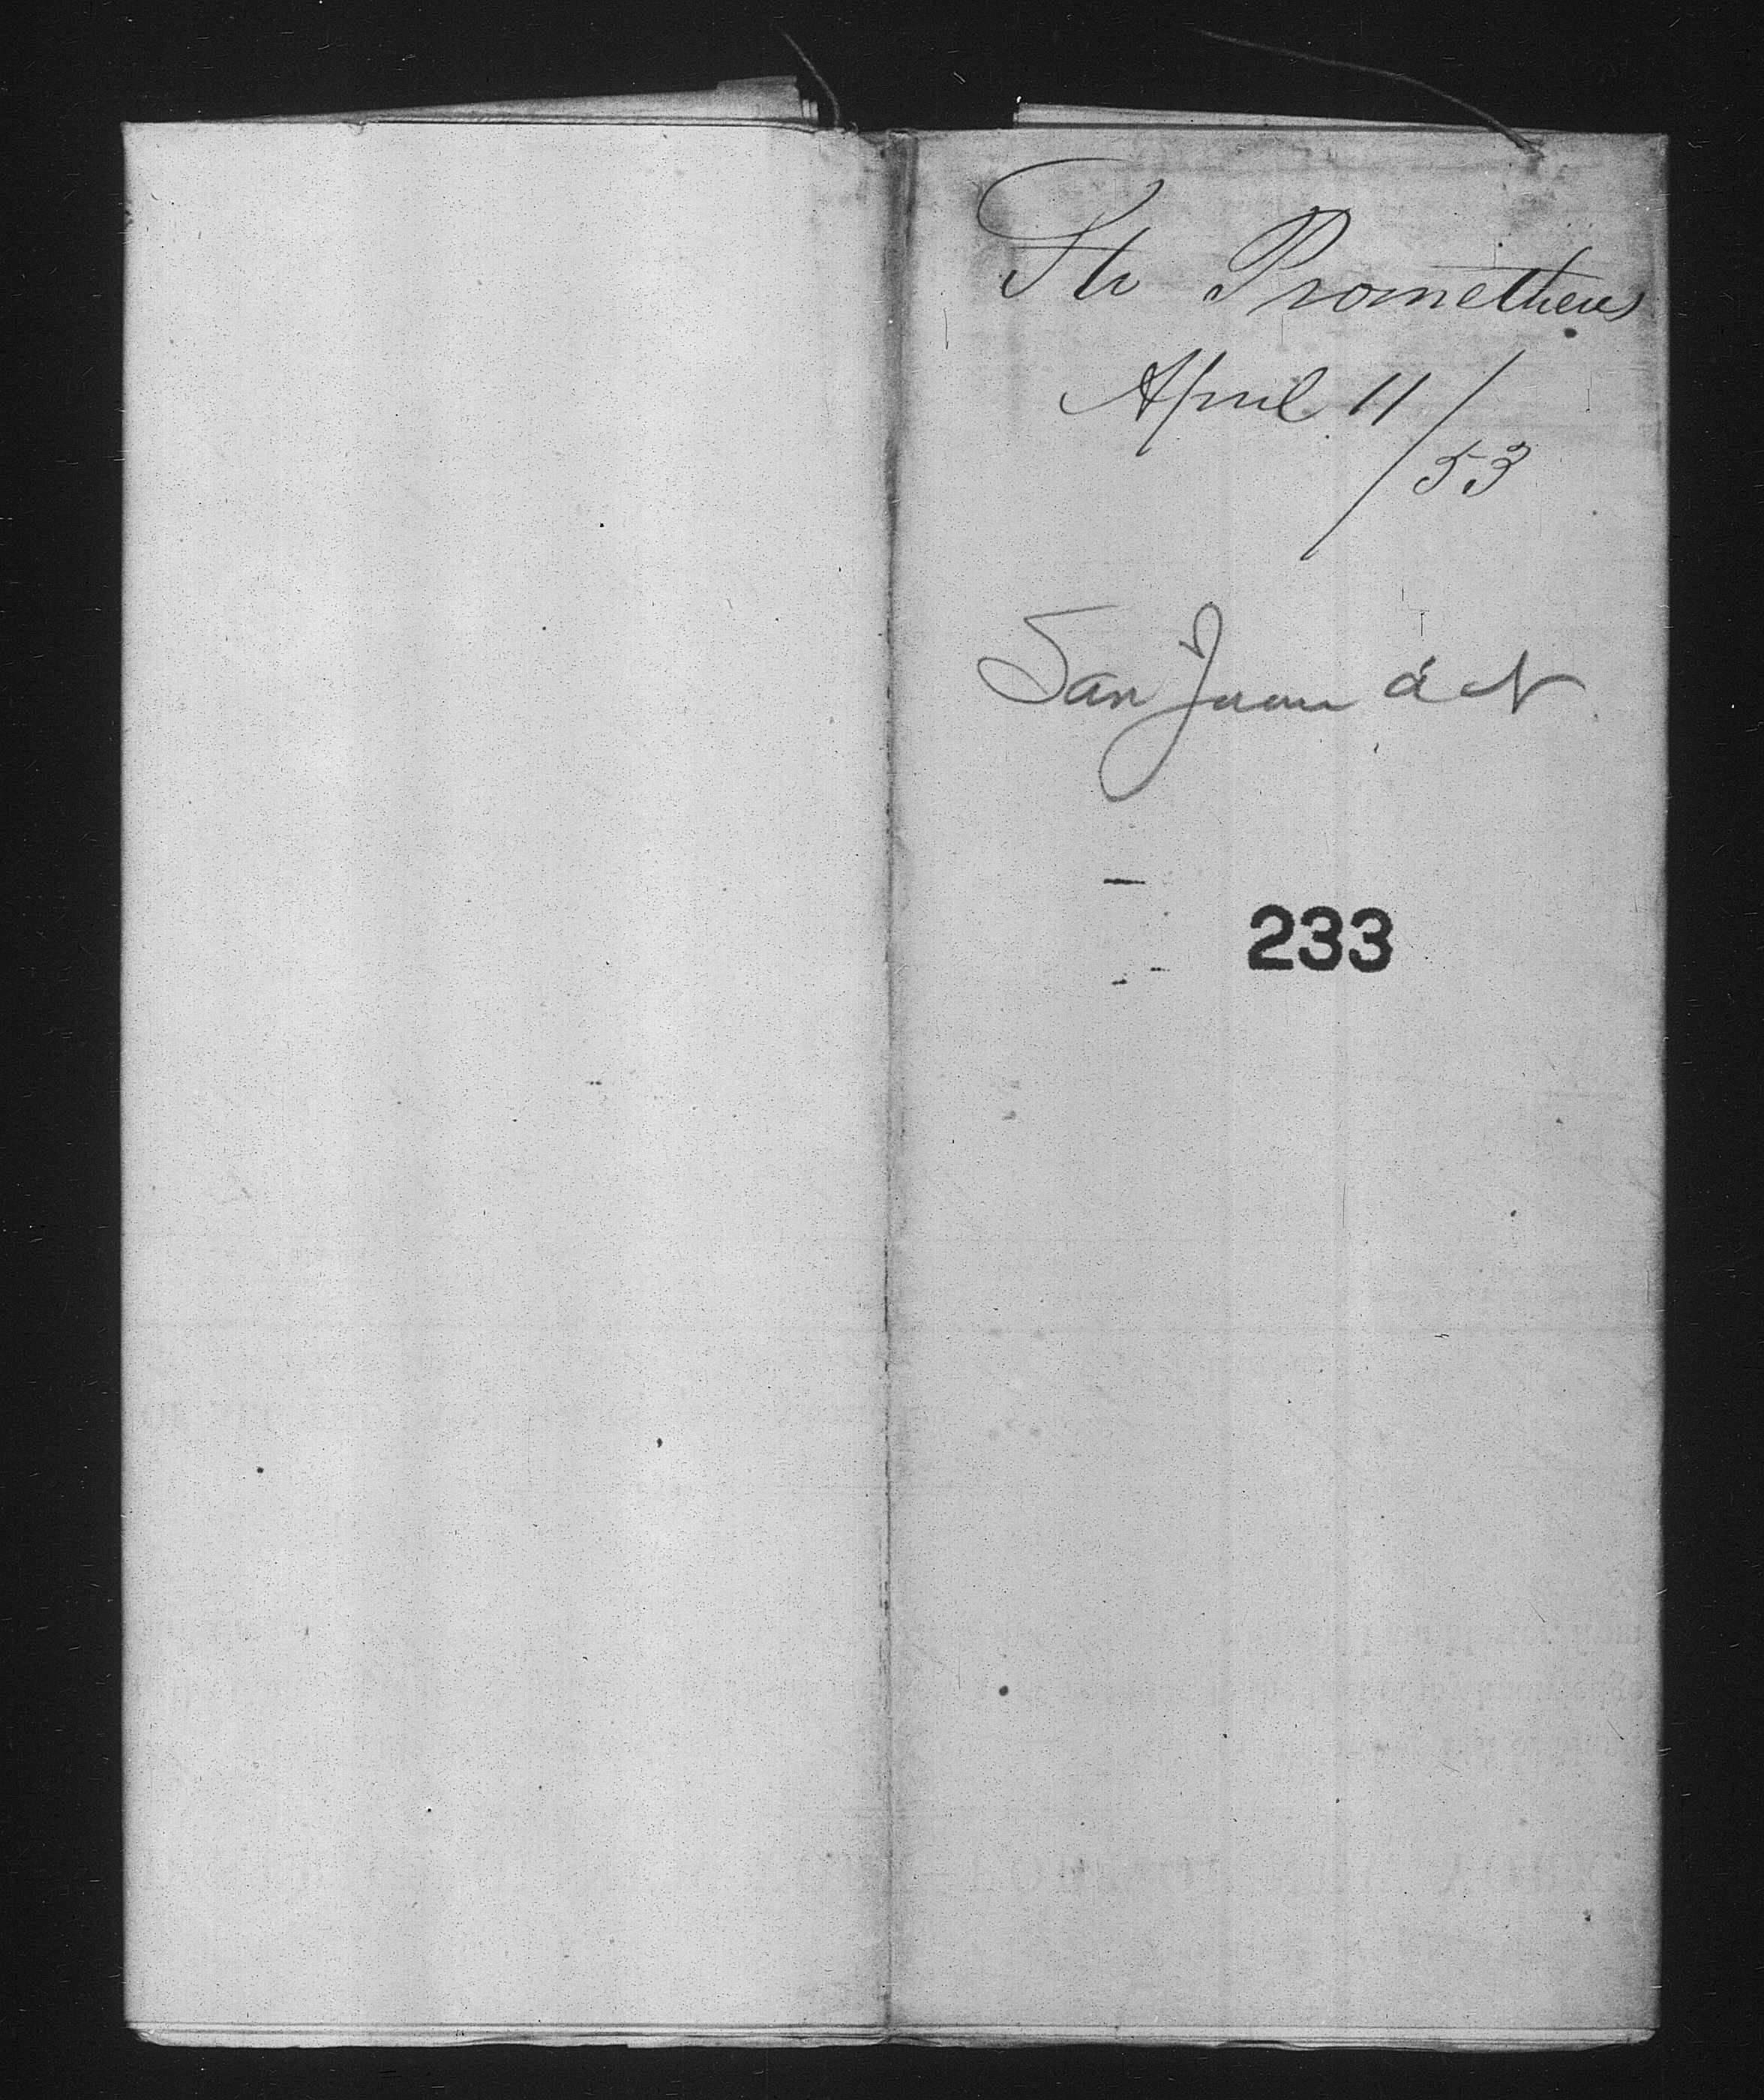 Str Prometheus
April 11/
/53
San Juan d N
233